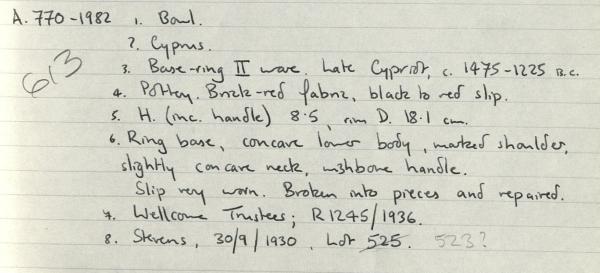 A. 770-1982 1. Bowl.
2. Cyprus.
613
3. Base-ring II ware. Late Cypriot, c. 1475-1225 B.C.
4. Pottery. Brick-red fabric, black to red slip.
5. H. (inc. handle) 8.5, rim D. 18.1 cm.
6. Ring base, concave lower body, marked shoulder,
slightly concave neck, wishbone handle.
Slip very worn. Broken into pieces and repaired.
7. Wellcome Trustees; R1245/1936.
8. Stevens, 30/9/1930, Lot 525. 523?